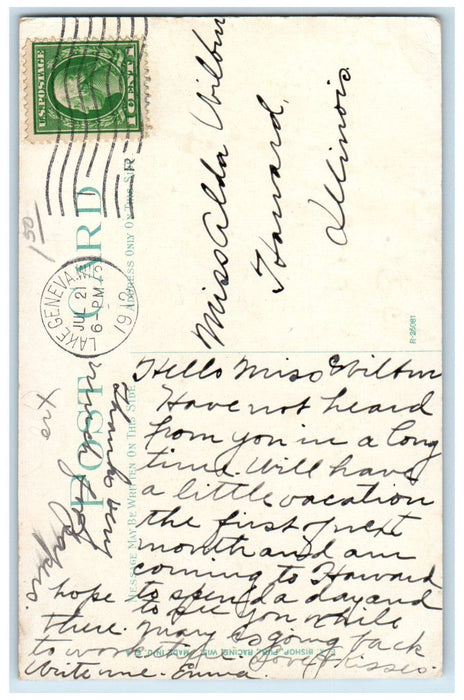 U.S. POSTAGE
1 CENT 1
LAKE GENEVA, WIS.
JUL 21
6-PM
1912
POST CARD
ADDRESS ONLY ON THIS SIDE
MESSAGE MAY BE WRITTEN ON THIS SIDE
1 50
Miss Alda Wilbur
Havard,
Illinois.
R-26081
Hello Miss Wilbur
Have not heard
from you in a long
time. Will have
a little vacation
the first of next
month and am
coming to Havard
to spend a day and
hope to see you while
there. Mary is going back
to work
Write me. Emma. Love & Kisses.
Thanks very
much for
BISHOP PUB. RACINE, WIS. MADE IN U.S.A.